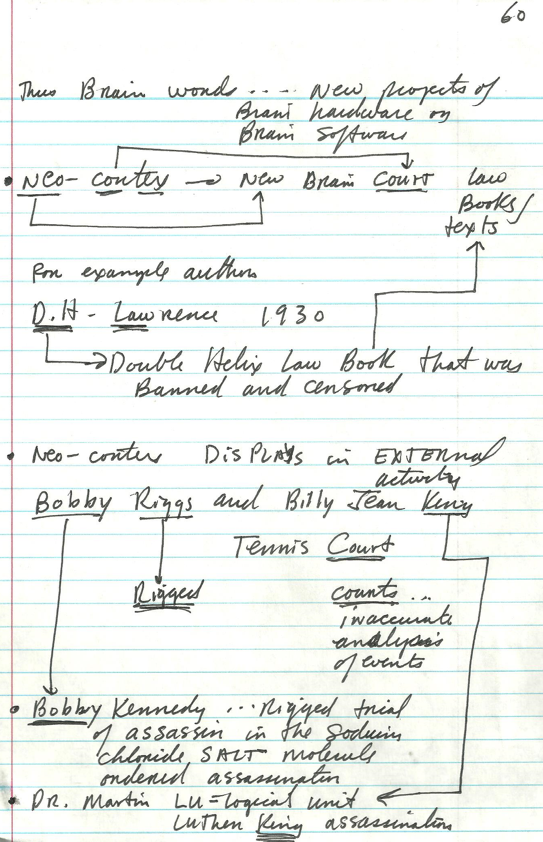 60
Thus Brain words .... New projects of
Brain hardware or
Brain Software
• Neo-cortex → New Brain Court Law
Books/
texts
For example author
D.H - Lawrence 1930
Double Helix Law Book that was
Banned and censored
• Neo-cortex DisPLAYs in EXTERNAL
activity
Bobby Riggs and Billy Jean King
Tennis Court
Rigged courts ...
inaccurate
analysis
of events
• Bobby Kennedy ... Rigged trial
of assassin in the Sodium
chloride SALT molecule
ordered assassination
• Dr. Martin LU=logical unit
Luther King assassination